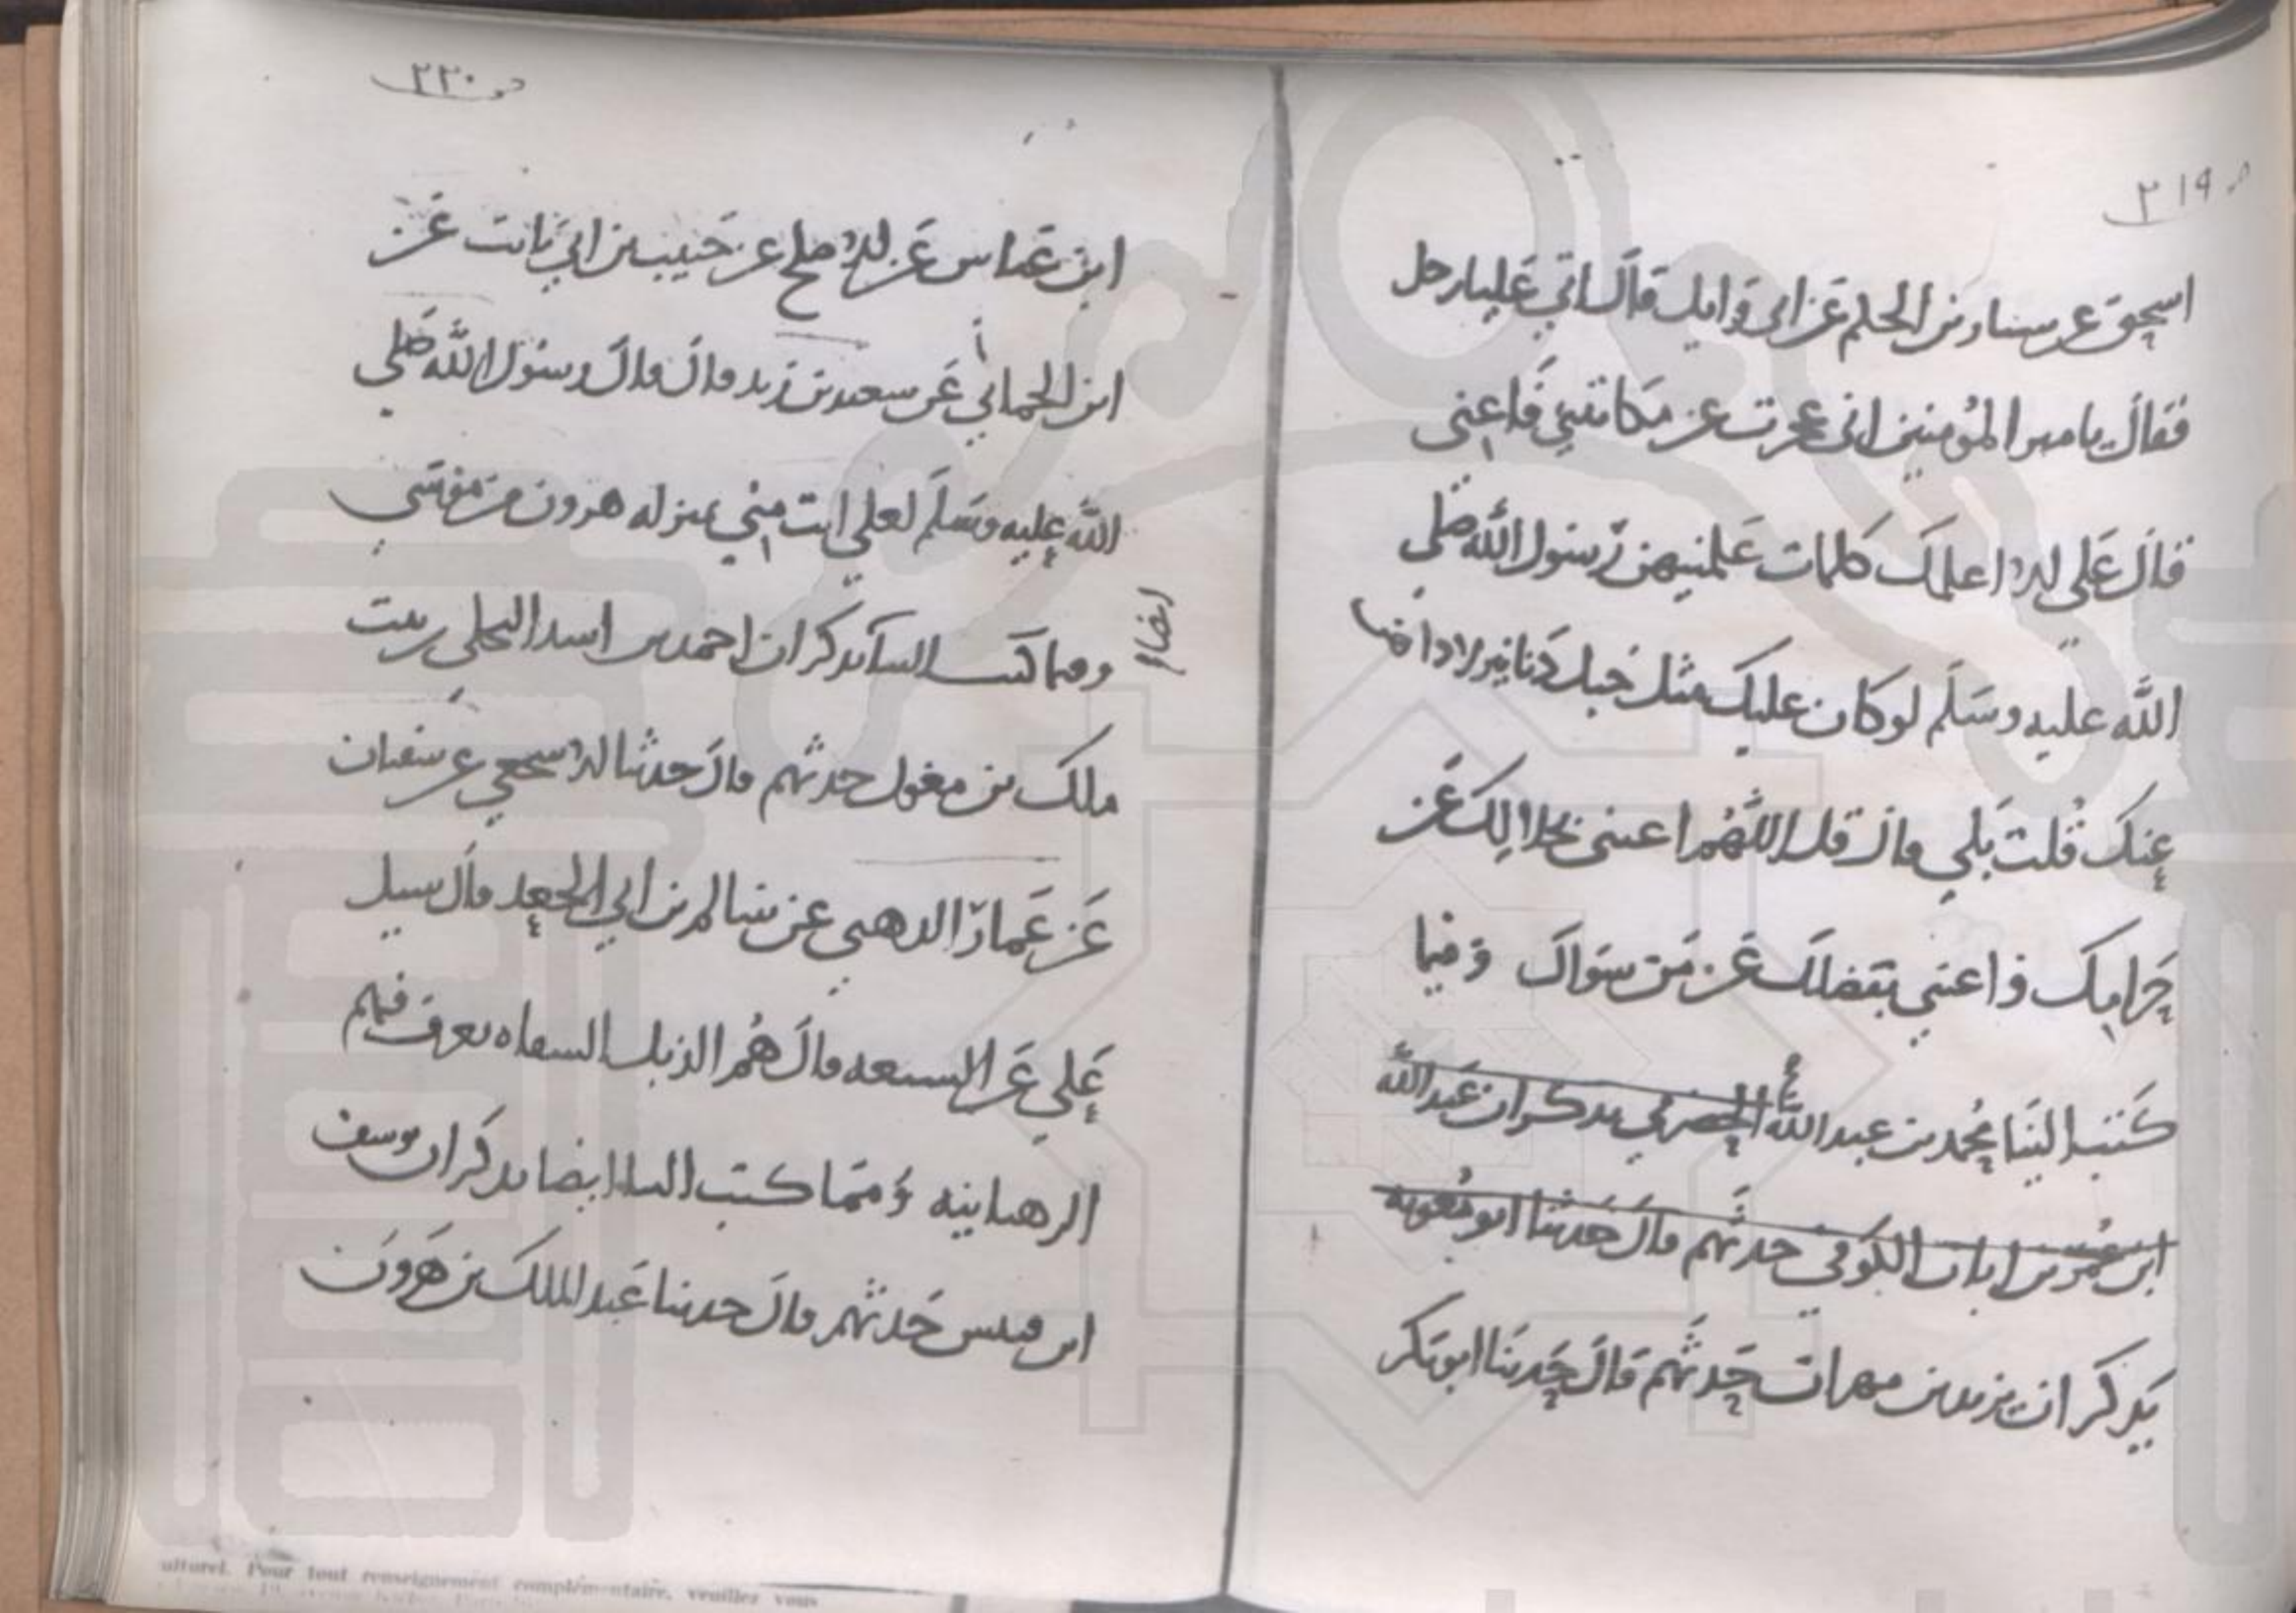 ٢١٩
اسحق عن سيار بن الحكم عن ابي وايل قال اتي عليا رجل
فقال يا امير المؤمنين اني عجزت عن مكاتبتي فاعني
قال علي الا اعلمك كلمات علمنيهن رسول الله صلى
الله عليه وسلم لو كان عليك مثل جبل دنانير لاداها
عنك قلت بلي قال قل اللهم اغنني بحلالك عن
حرامك واغنني بفضلك عن من سواك وفيما
كتب الينا محمد بن عبد الله الحضرمي يذكر ان عبد الله
ابن عمر بن ابان الكوفي حدثهم قال حدثنا ابو معوية
يذكر ان يزيد بن مهران حدثهم قال حدثنا ابو بكر
٢٢٠
ابن عياش عن الاجلح عن حبيب بن ابي ثابت عن
ابن الحماني عن سعيد بن زيد قال قال رسول الله صلى
الله عليه وسلم لعلي انت مني بمنزله هرون من موسي
وفيما كتب الينا يذكر ان احمد بن اسد البجلي بن بنت
ايضا
ملك بن مغول حدثهم قال حدثنا الاشجعي عن سفيان
عن عمار الدهني عن سالم بن ابي الجعد قال سيل
علي عن الشيعه قال هم الذبل الشفاه يعرف فيهم
الرهبانيه ومما كتب الينا ايضا يذكر ان يوسف
ابن نفيس حدثهم قال حدثنا عبد الملك بن هرون